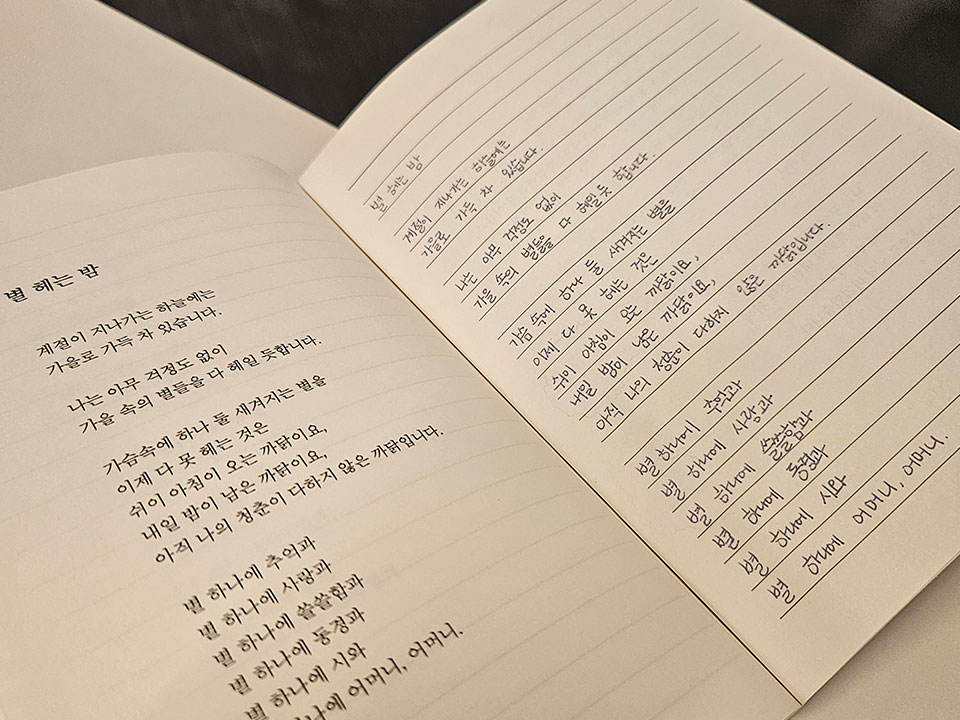 별 헤는 밤
계절이 지나가는 하늘에는
가을로 가득 차 있습니다.
나는 아무 걱정도 없이
가을 속의 별들을 다 헤일 듯합니다.
가슴속에 하나 둘 새겨지는 별을
이제 다 못 헤는 것은
쉬이 아침이 오는 까닭이요,
내일 밤이 남은 까닭이요,
아직 나의 청춘이 다하지 않은 까닭입니다.
별 하나에 추억과
별 하나에 사랑과
별 하나에 쓸쓸함과
별 하나에 동경과
별 하나에 시와
별 하나에 어머니, 어머니.
별 헤는 밤
계절이 지나가는 하늘에는
가을로 가득 차 있습니다.
나는 아무 걱정도 없이
가을 속의 별들을 다 헤일 듯 합니다.
가슴 속에 하나 둘 새겨지는 별을
이제 다 못 헤는 것은
쉬이 아침이 오는 까닭이요,
내일 밤이 남은 까닭이요,
아직 나의 청춘이 다하지 않은 까닭입니다.
별 하나에 추억과
별 하나에 사랑과
별 하나에 쓸쓸함과
별 하나에 동경과
별 하나에 시와
별 하나에 어머니, 어머니.